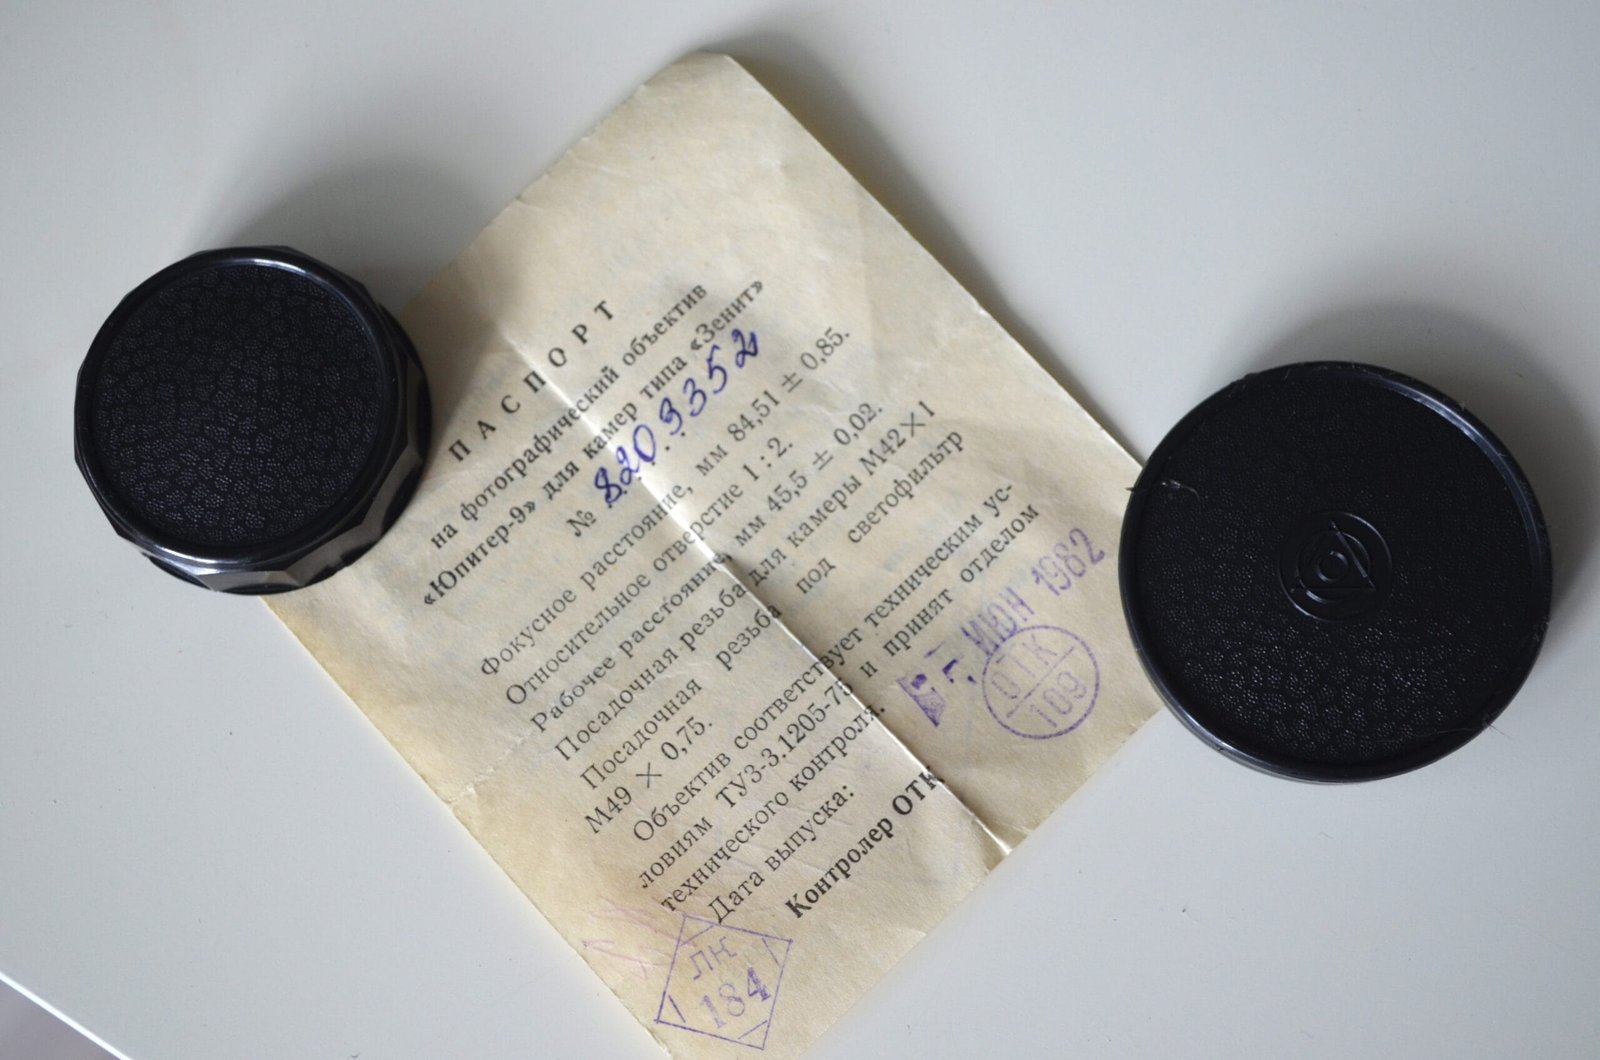 ПАСПОРТ
на фотографический объектив
«Юпитер-9» для камер типа «Зенит»
№ 8209352
Фокусное расстояние, мм 84,51 ± 0,85.
Относительное отверстие 1 : 2.
Рабочее расстояние, мм 45,5 ± 0,02.
Посадочная резьба для камеры М42×1
Посадочная резьба под светофильтр
М49 × 0,75.
Объектив соответствует техническим ус-
ловиям ТУ3-3.1205-75 и принят отделом
технического контроля.
Дата выпуска:
ИЮН 1982
ОТК
109
Контролер ОТК
ЛК
184